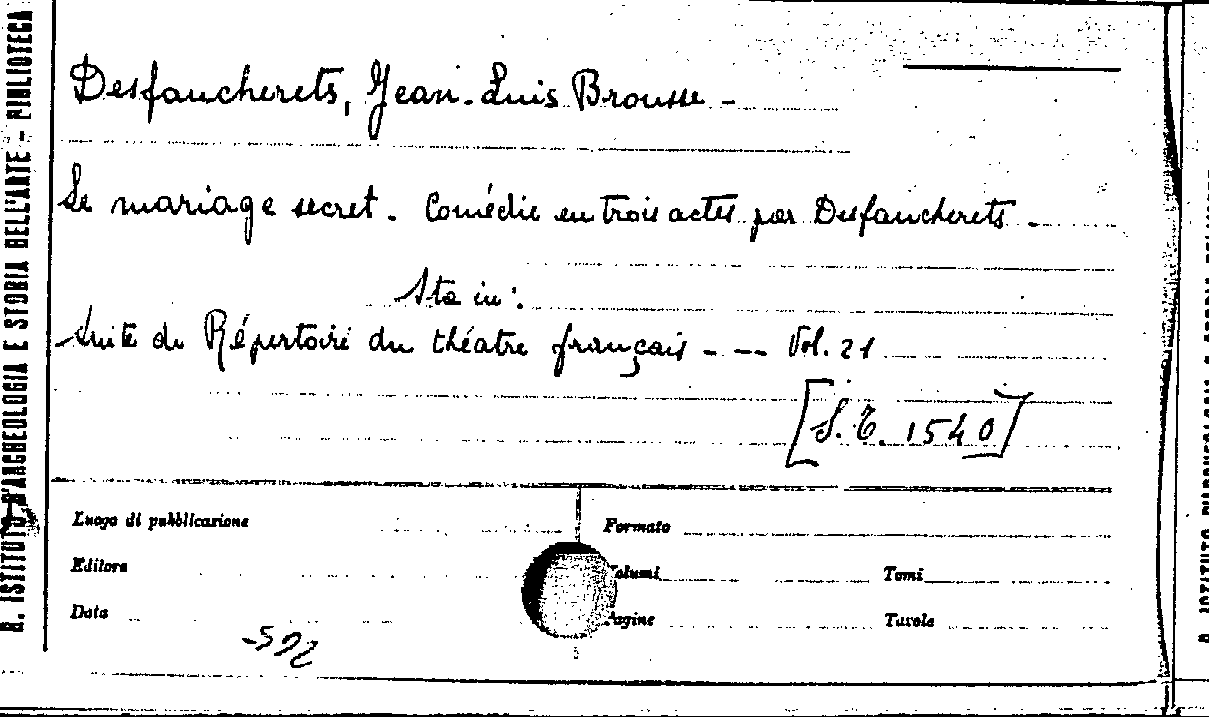 R. ISTITUTO D'ARCHEOLOGIA E STORIA DELL'ARTE - BIBLIOTECA
Desfaucherets, Jean-Luis Brousse -
Le mariage secret. Comédie en trois actes par Desfaucherets -
Sta in:
Suite du Répertoire du théatre français - -- Vol. 21
[S. T. 1540]
Luogo di pubblicazione
Formato
Editore
Volumi
Tomi
Data
Pagine
Tavole